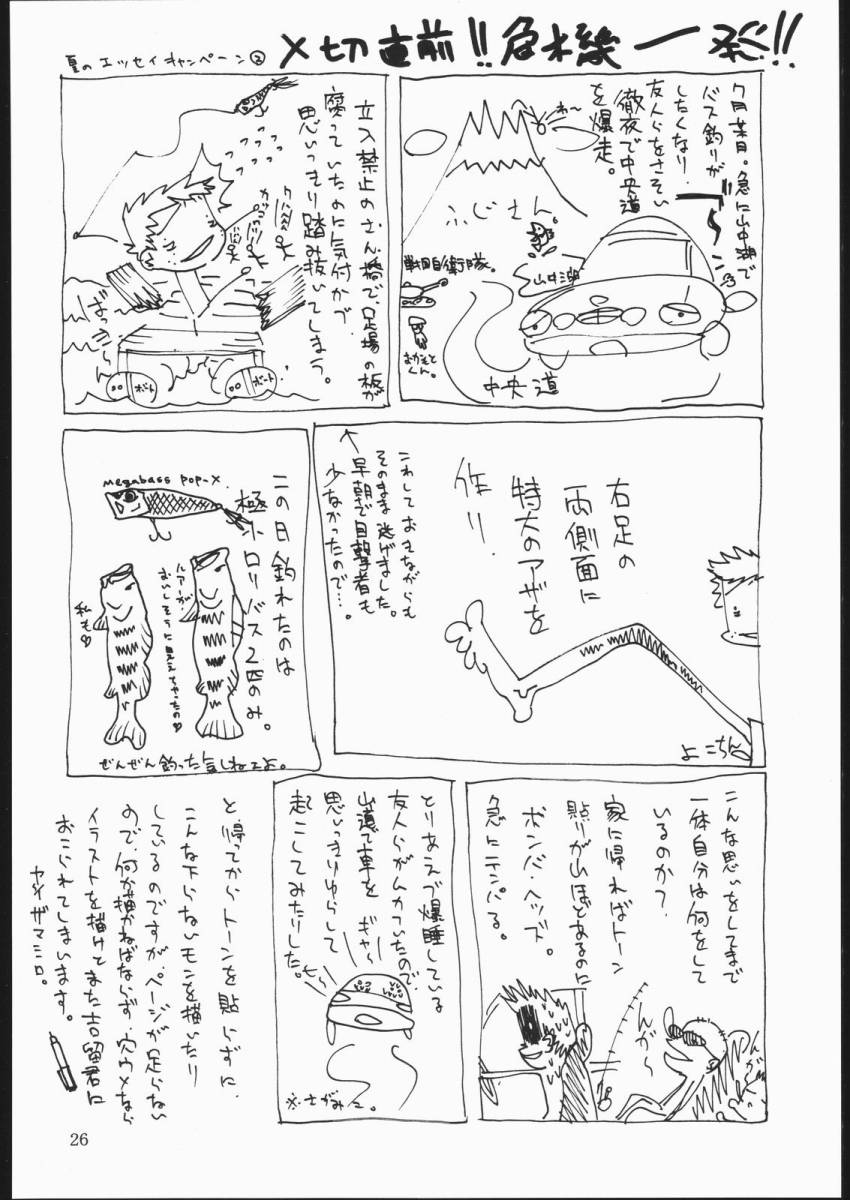 夏のエッセイキャンペーン②
〆切直前!!危機一発!!
7月某日。急に山中湖で
バス釣りが
したくなり、
友人らをさそい
徹夜で中央道
を爆走。
わ〜
ふじさん
山中湖
戦国自衛隊。
おかもと
くん。
中央道
立入禁止のさん橋で、足場の板が
腐っていたのに気付かず
思いっきり踏み抜いてしまう。
ボート
ボート
右足の
両側面に
特大のアザを
作り、
こわしておきながらも
そのまま逃げました。
早朝で目撃者も
少なかったので…。
よこちん
この日釣れたのは
極小ロリバス2匹のみ。
megabass pop-x.
ルアーが
おいしそうに見えちゃったの♡
私も♡
ぜんぜん釣った気しねーよ。
こんな思いをしてまで
一体自分は何をして
いるのか?
家に帰ればトーン
貼りが山ほどあるのに
ボンバヘッズ。
急にテンパる。
んが〜
とりあえず爆睡している
友人らがムカついたので
山道で車を
思いっきりゆらして
起こしてみたりした。
ギャ〜
※さがみこ。
と、帰ってからトーンを貼らずに、
こんな下らないモンを描いたり
しているのですが、ページが足らない
ので、何か描かねばならず、穴ウメなら
イラストを描けとまた吉留君に
おこられてしまいます。
ヤノザマシロ。
26